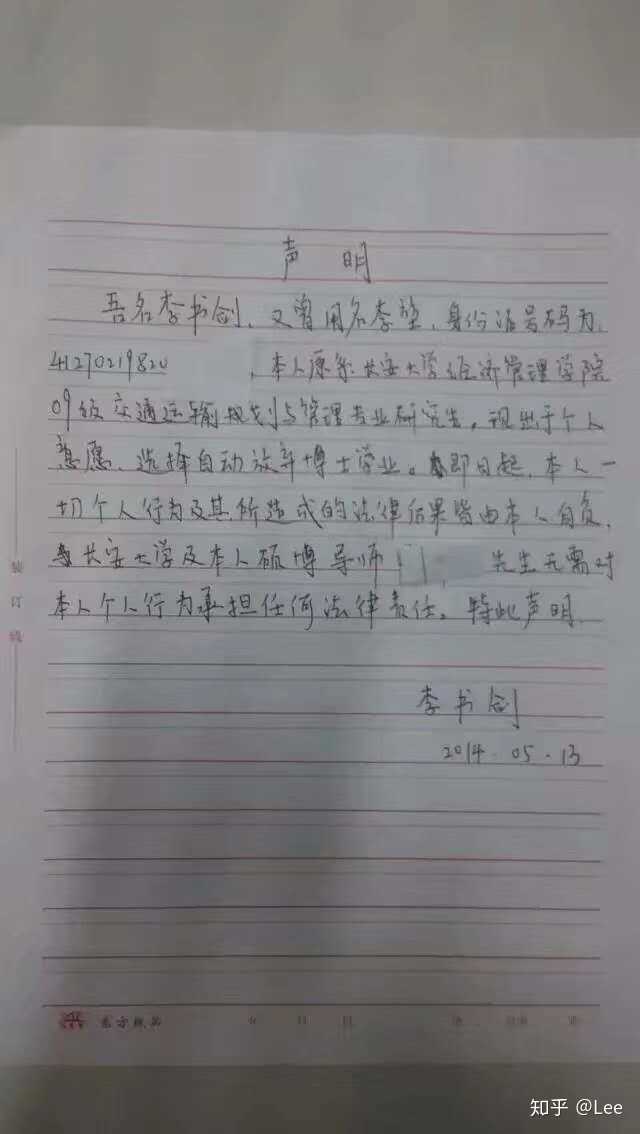 声 明
吾名李书剑、又曾用名李堃,身份证号码为,
41270219820 ,本人原系长安大学经济管理学院
09级交通运输规划与管理专业研究生。现出于个人
意愿、选择自动放弃博士学业。即日起,本人一
切个人行为及其所造成的法律后果皆由本人自负,
长安大学及本人硕博导师 先生无需对
本人个人行为承担任何法律责任。特此声明.
李书剑
2014.05.13
装
订
线
知乎 @Lee